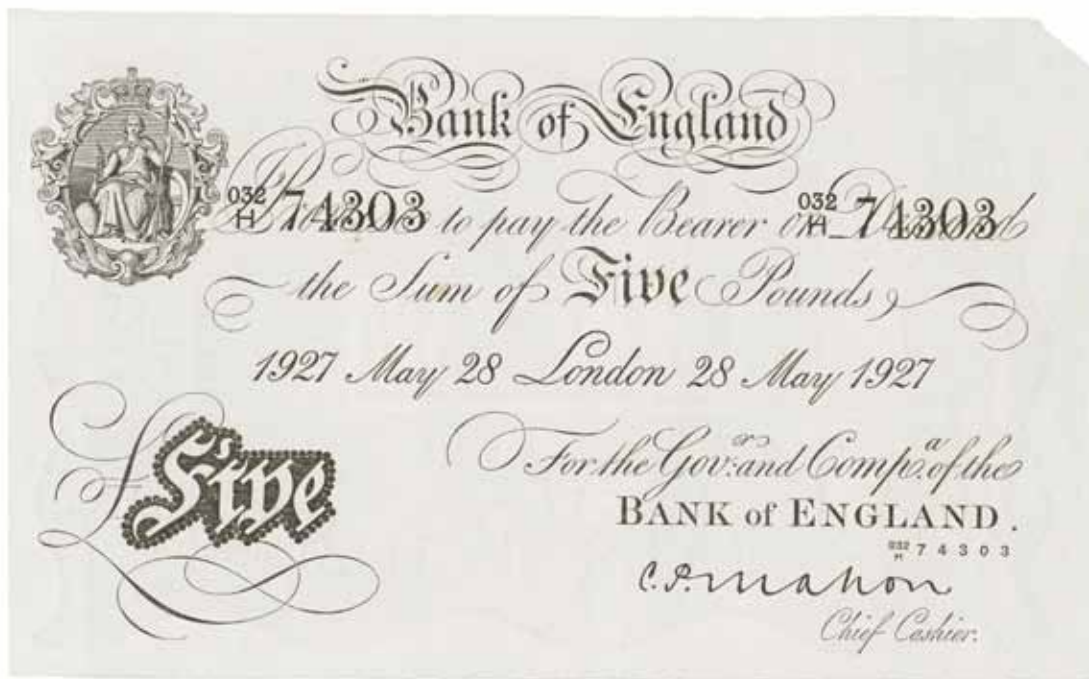 Bank of England
032
H 74303 to pay the Bearer on 032
H 74303
the Sum of Five Pounds
1927 May 28 London 28 May 1927
£ Five
For the Gov.r and Comp.a of the
BANK of ENGLAND.
032
H 74303
C.P. Mahon
Chief Cashier.